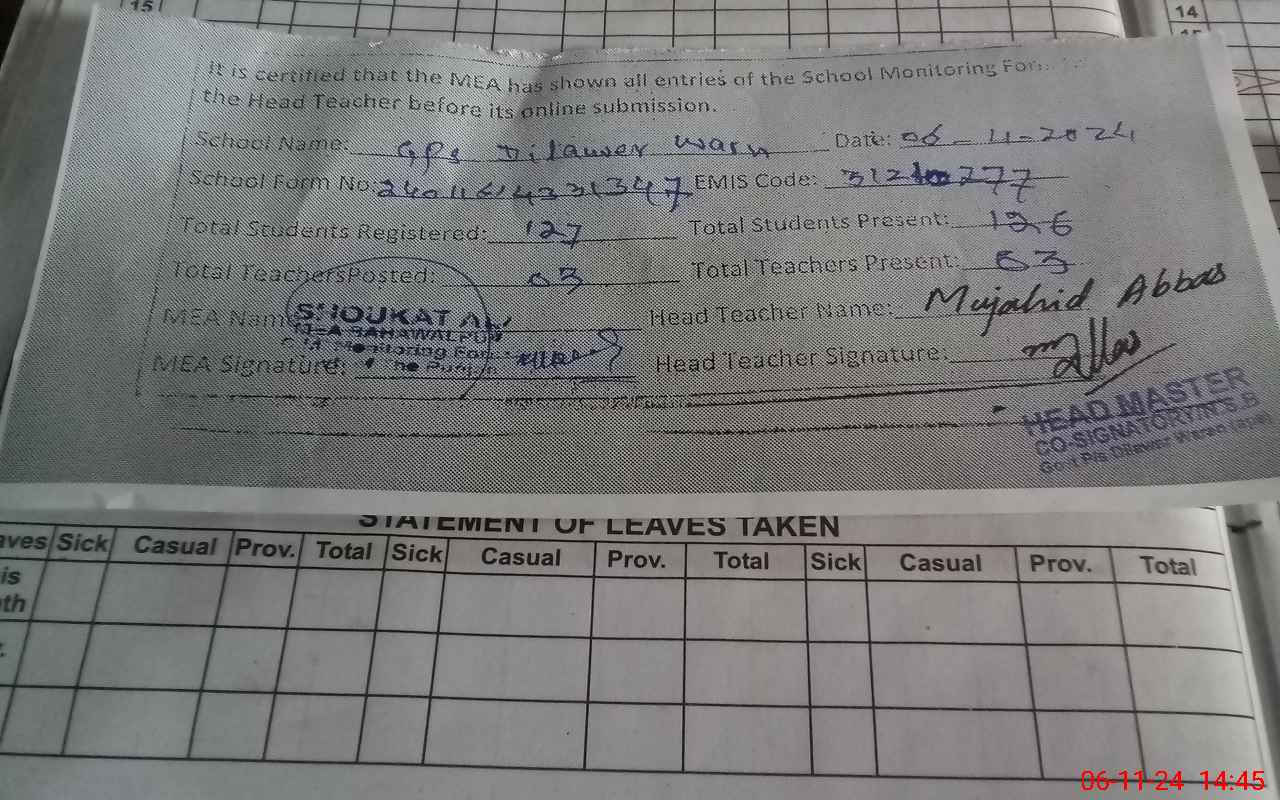 15
14
It is certified that the MEA has shown all entries of the School Monitoring For
the Head Teacher before its online submission.
School Name: GPS Dilawer Warn Date: 06-11-2024
School Form No: EMIS Code:
Total Students Registered: 127 Total Students Present: 126
Total Teachers Posted: 03 Total Teachers Present: 03
MEA Name SHOUKAT Head Teacher Name: Mujahid Abbas
MEA BAHAWALPUR
Monitoring For
MEA Signature: Head Teacher Signature:
HEAD MASTER
CO-SIGNATORY/N.S.B
Govt P/s Dilawar Waran
STATEMENT OF LEAVES TAKEN
aves Sick Casual Prov. Total Sick Casual Prov. Total Sick Casual Prov. Total
is
th
06-11-24 14:45